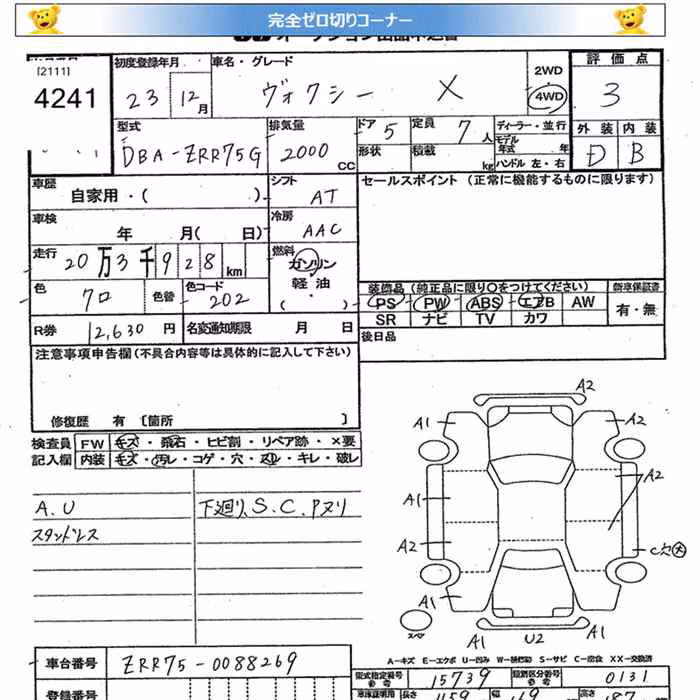 完全ゼロ切りコーナー
[2111]
4241
初度登録年月
23 12月
車名・グレード
ヴォクシー X
2WD
4WD
評価点
3
外装 内装
D B
型式
DBA-ZRR75G
排気量
2000 CC
ドア 5
形状
定員 7人
積載 kg
ディーラー・並行
モデル年式 年
ハンドル 左・右
車歴
自家用・( )
シフト
AT
セールスポイント (正常に機能するものに限ります)
車検
年 月(日)
冷房
AAC
走行
20万3千928km
燃料
ガソリン
軽油
( )
色
クロ
色替
色コード
202
装飾品 (純正品に限り○をつけてください)
PS PW ABS エアB AW
SR ナビ TV カワ
新車保証書
有・無
R券 12,630円
名変通知期限 月 日
後日品
注意事項申告欄(不具合内容等は具体的に記入して下さい)
修復歴 有 [箇所 ]
検査員
記入欄
FW キズ・飛石・ヒビ割・リペア跡・×要
内装 キズ・汚レ・コゲ・穴・スレ・キレ・破レ
A.U
スタッドレス
下廻り、S.C.Pヌリ
A2
A1
A2
A2
A1
A2
C欠大
A1
A1
スペア
A1
U2
A1
A-キズ E-エクボ U-凹み W-板跡凹 S-サビ C-腐食 XX-交換済
車台番号
ZRR75-0088269
型式指定番号 参考
15739
類別区分番号 参考
0131
登録番号
車庫証明用
長さ
459
幅
169
高さ
187